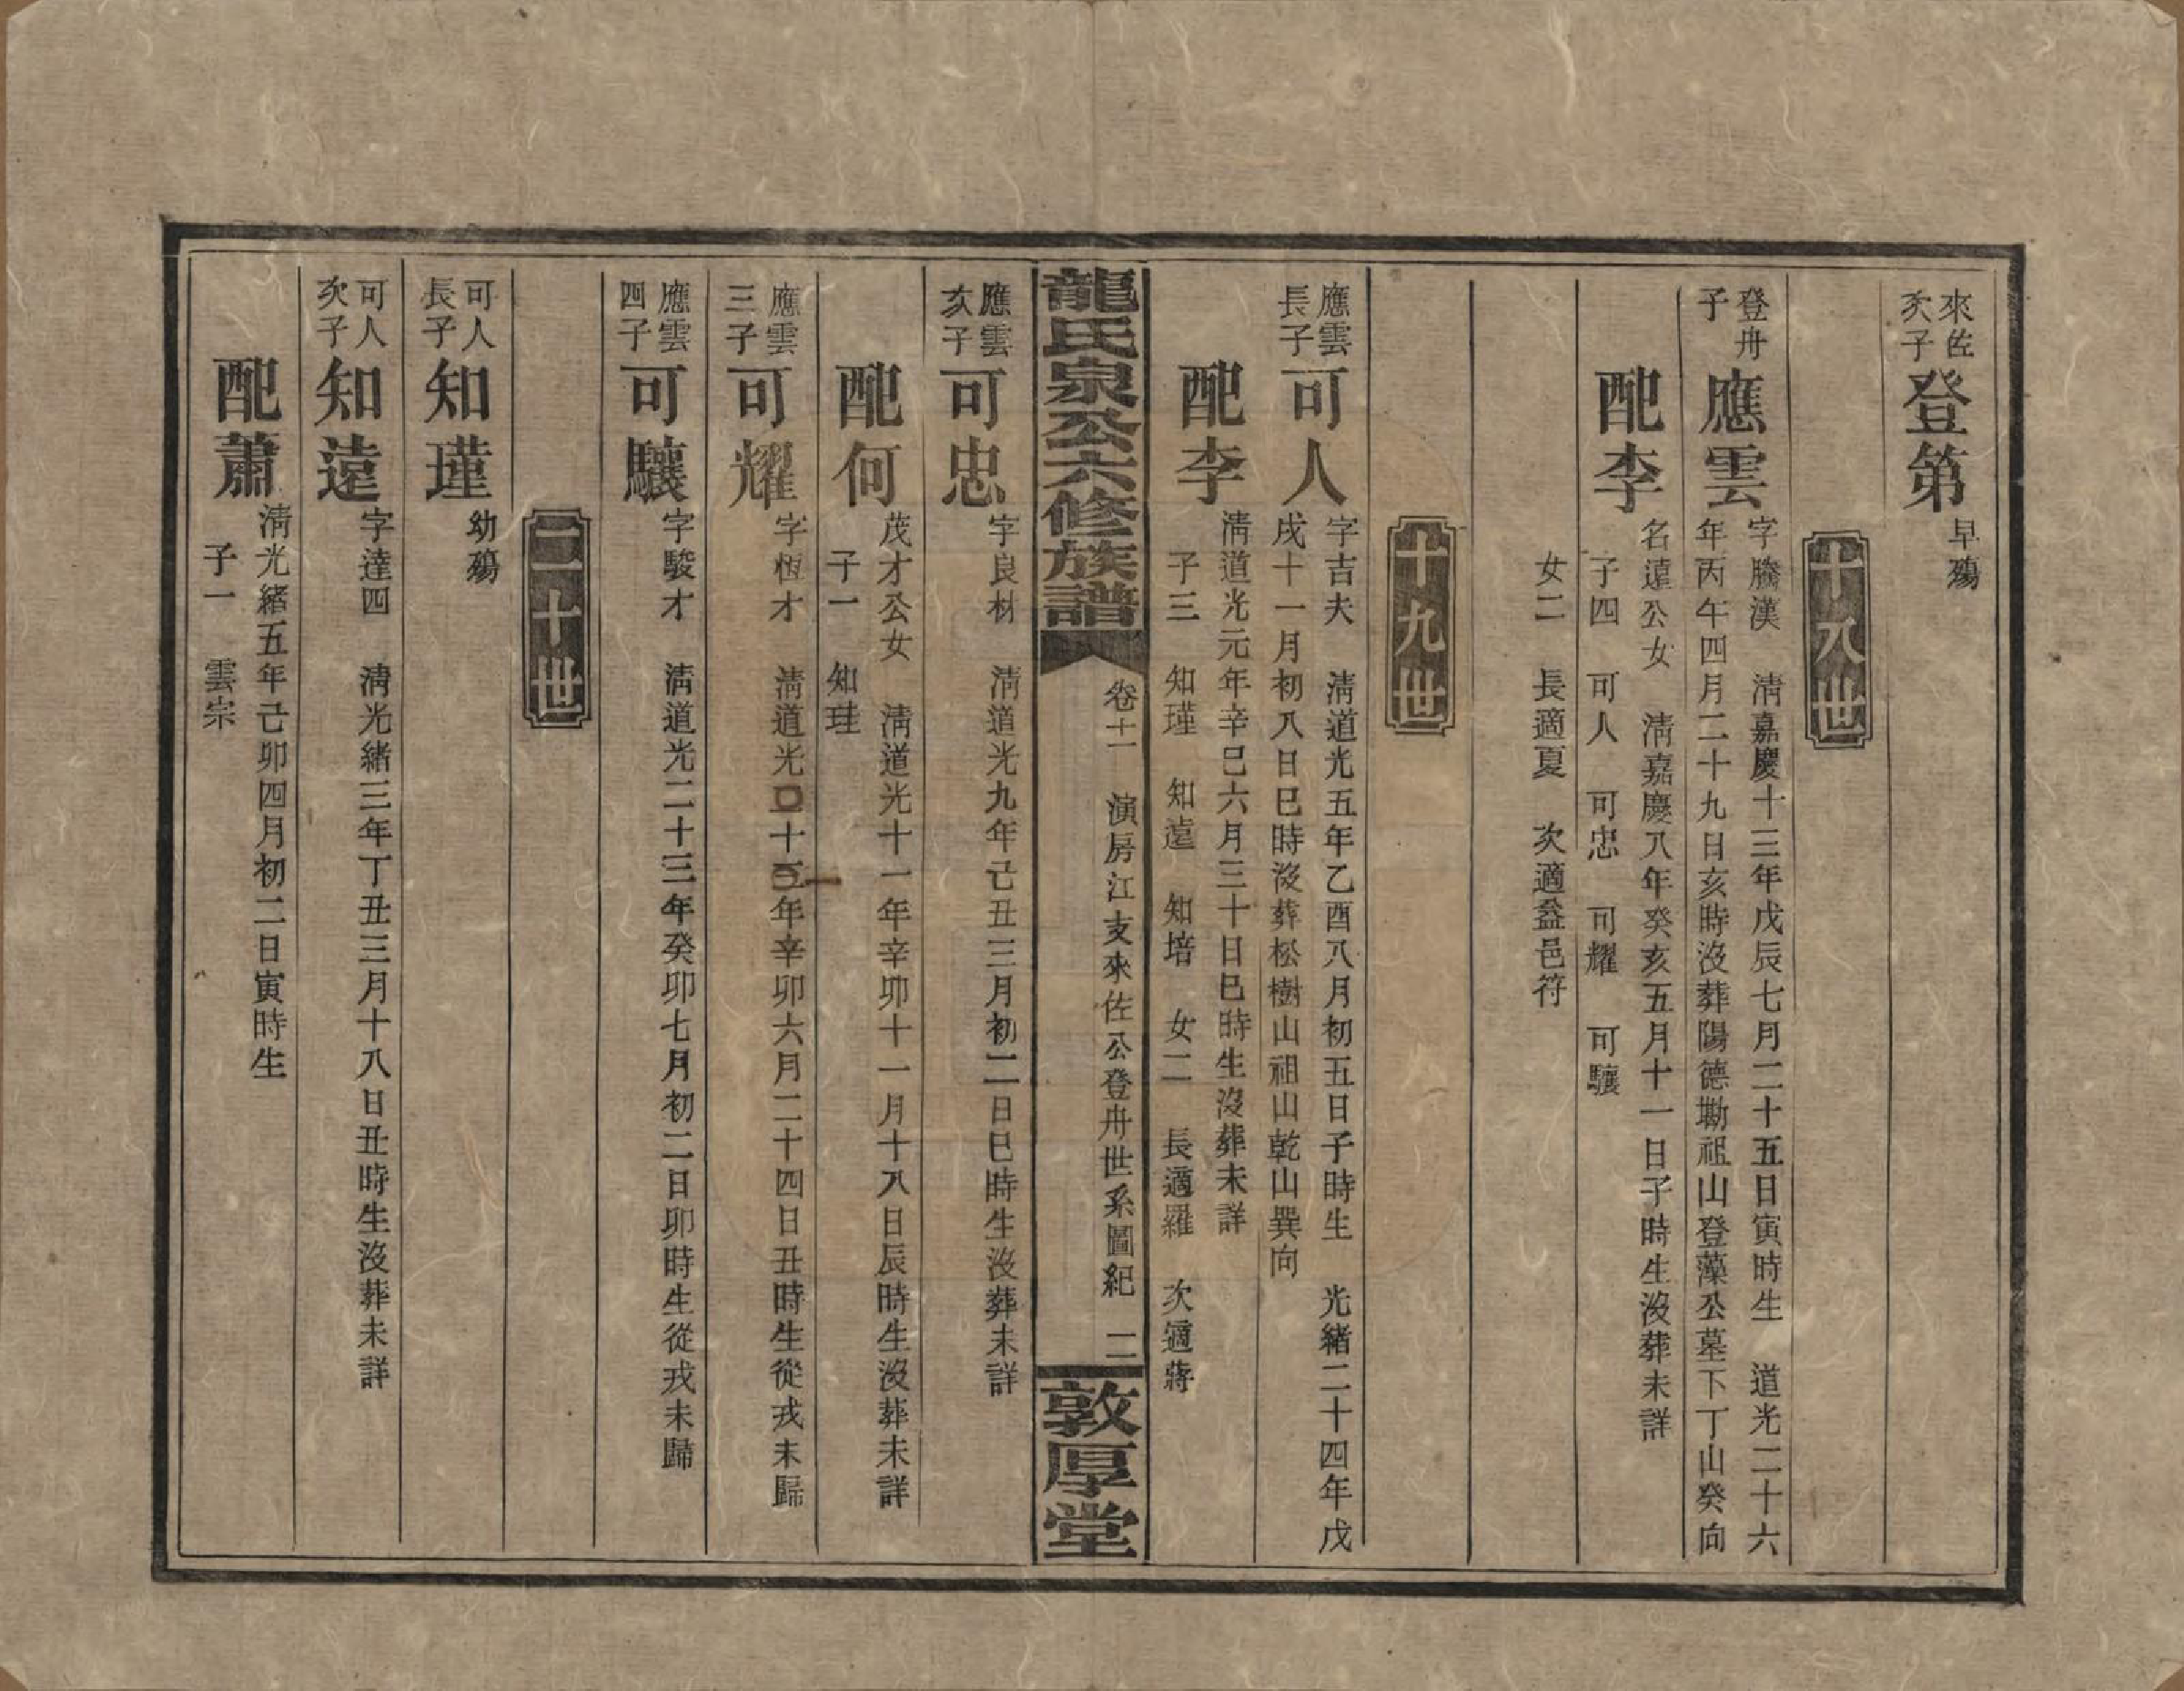 來佐
次子
登第
早殤
十八世
登舟
子
應雲
字騰漢　清嘉慶十三年戊辰七月二十五日寅時生　道光二十六
年丙午四月二十九日亥時沒葬陽德坳祖山登藻公墓下丁山癸向
配李
名遠公女　清嘉慶八年癸亥五月十一日子時生沒葬未詳
子四　可人　可忠　可耀　可驤
女二　長適夏　次適益邑符
十九世
應雲
長子
可人
字吉夫　清道光五年乙酉八月初五日子時生　光緒二十四年戊
戌十一月初八日巳時沒葬松樹山祖山乾山巽向
配李
清道光元年辛巳六月三十日巳時生沒葬未詳
子三　知瑾　知遠　知培　女二　長適羅　次適蔣
龍氏泉公六修族譜
卷十一　演房江支來佐公登舟世系圖紀　二
敦厚堂
應雲
次子
可忠
字良材　清道光九年己丑三月初二日巳時生沒葬未詳
配何
茂才公女　清道光十一年辛卯十一月十八日辰時生沒葬未詳
子一　知珪
應雲
三子
可耀
字恆才　清道光十一年辛卯六月二十四日丑時生從戎未歸
應雲
四子
可驤
字駿才　清道光二十三年癸卯七月初二日卯時生從戎未歸
二十世
可人
長子
知瑾
幼殤
可人
次子
知遠
字達四　清光緒三年丁丑三月十八日丑時生沒葬未詳
配蕭
清光緒五年己卯四月初二日寅時生
子一　雲宗